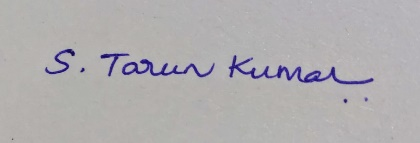 S. Tarun Kumar